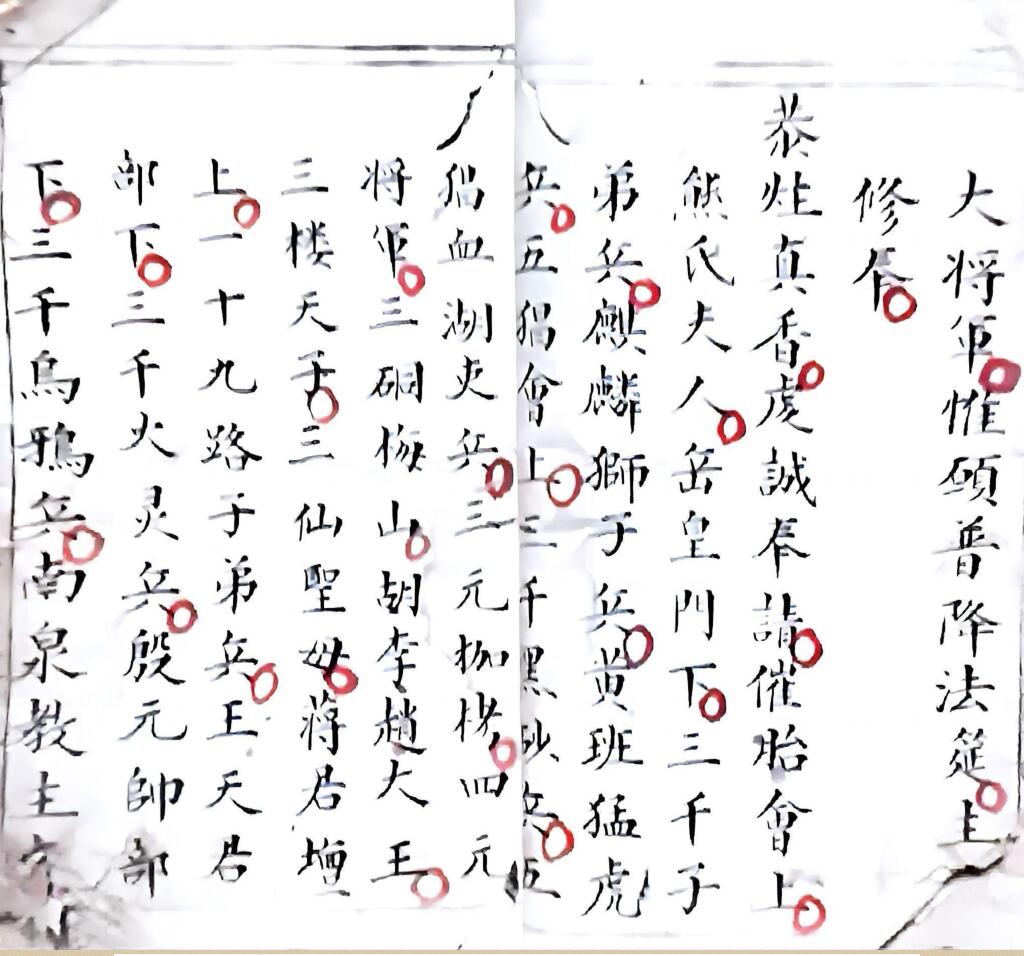 大将军惟願普降法筵上
修唇
恭炷真香虔誠奉請催胎會上
熊氏夫人岳皇門下三千子
弟兵麒麟獅子兵黄班猛虎
兵五猖會上三千黑砂兵五
猖血湖吏兵三元枷栲四元
将軍三硐梅山胡李趙大王
三楼天子三仙聖母蒋君壇
上一十九路子弟兵王天君
部下三千火灵兵殷元帥部
下三千烏鴉兵南泉教主